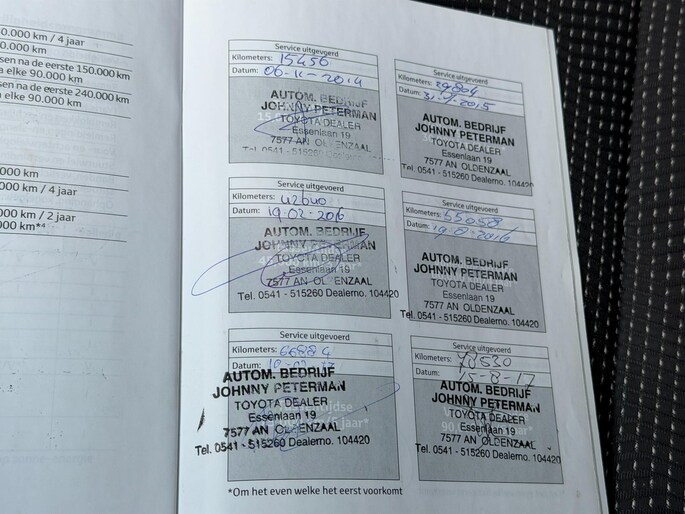 0.000 km / 4 jaar
0.000 km
sen na de eerste 150.000 km
a elke 90.000 km
sen na de eerste 240.000 km
a elke 90.000 km
000 km
000 km / 4 jaar
000 km / 2 jaar
000 km*⁴
Service uitgevoerd
Kilometers: 15456
Datum: 06-11-2014
AUTOM. BEDRIJF
JOHNNY PETERMAN
TOYOTA DEALER
Essenlaan 19
7577 AN OLDENZAAL
Tel. 0541 - 515260
Service uitgevoerd
Kilometers: 29804
Datum: 2015
AUTOM. BEDRIJF
JOHNNY PETERMAN
TOYOTA DEALER
Essenlaan 19
7577 AN OLDENZAAL
Tel. 0541 - 515260 Dealerno. 104420
Service uitgevoerd
Kilometers:
Datum: 19-02-2016
AUTOM. BEDRIJF
JOHNNY PETERMAN
TOYOTA DEALER
Essenlaan 19
7577 AN OLDENZAAL
Tel. 0541 - 515260 Dealerno. 104420
Service uitgevoerd
Kilometers: 55058
Datum: 2016
AUTOM. BEDRIJF
JOHNNY PETERMAN
TOYOTA DEALER
Essenlaan 19
7577 AN OLDENZAAL
Tel. 0541 - 515260 Dealerno. 104420
Service uitgevoerd
Kilometers:
Datum:
AUTOM. BEDRIJF
JOHNNY PETERMAN
TOYOTA DEALER
Essenlaan 19
7577 AN OLDENZAAL
Tel. 0541 - 515260 Dealerno. 104420
Service uitgevoerd
Kilometers: 78530
Datum: 15-8-17
AUTOM. BEDRIJF
JOHNNY PETERMAN
TOYOTA DEALER
Essenlaan 19
7577 AN OLDENZAAL
Tel. 0541 - 515260 Dealerno. 104420
*Om het even welke het eerst voorkomt